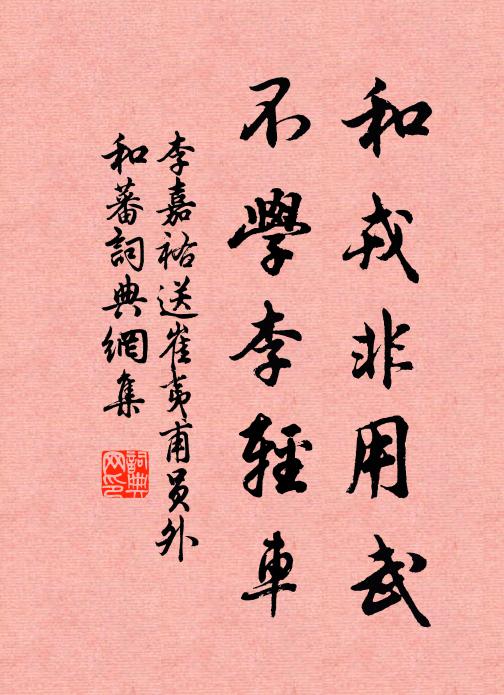 和戎非用武
不學李輕車
李嘉祐送崔夷甫員外
和蕃詞典網集
詞典
网印